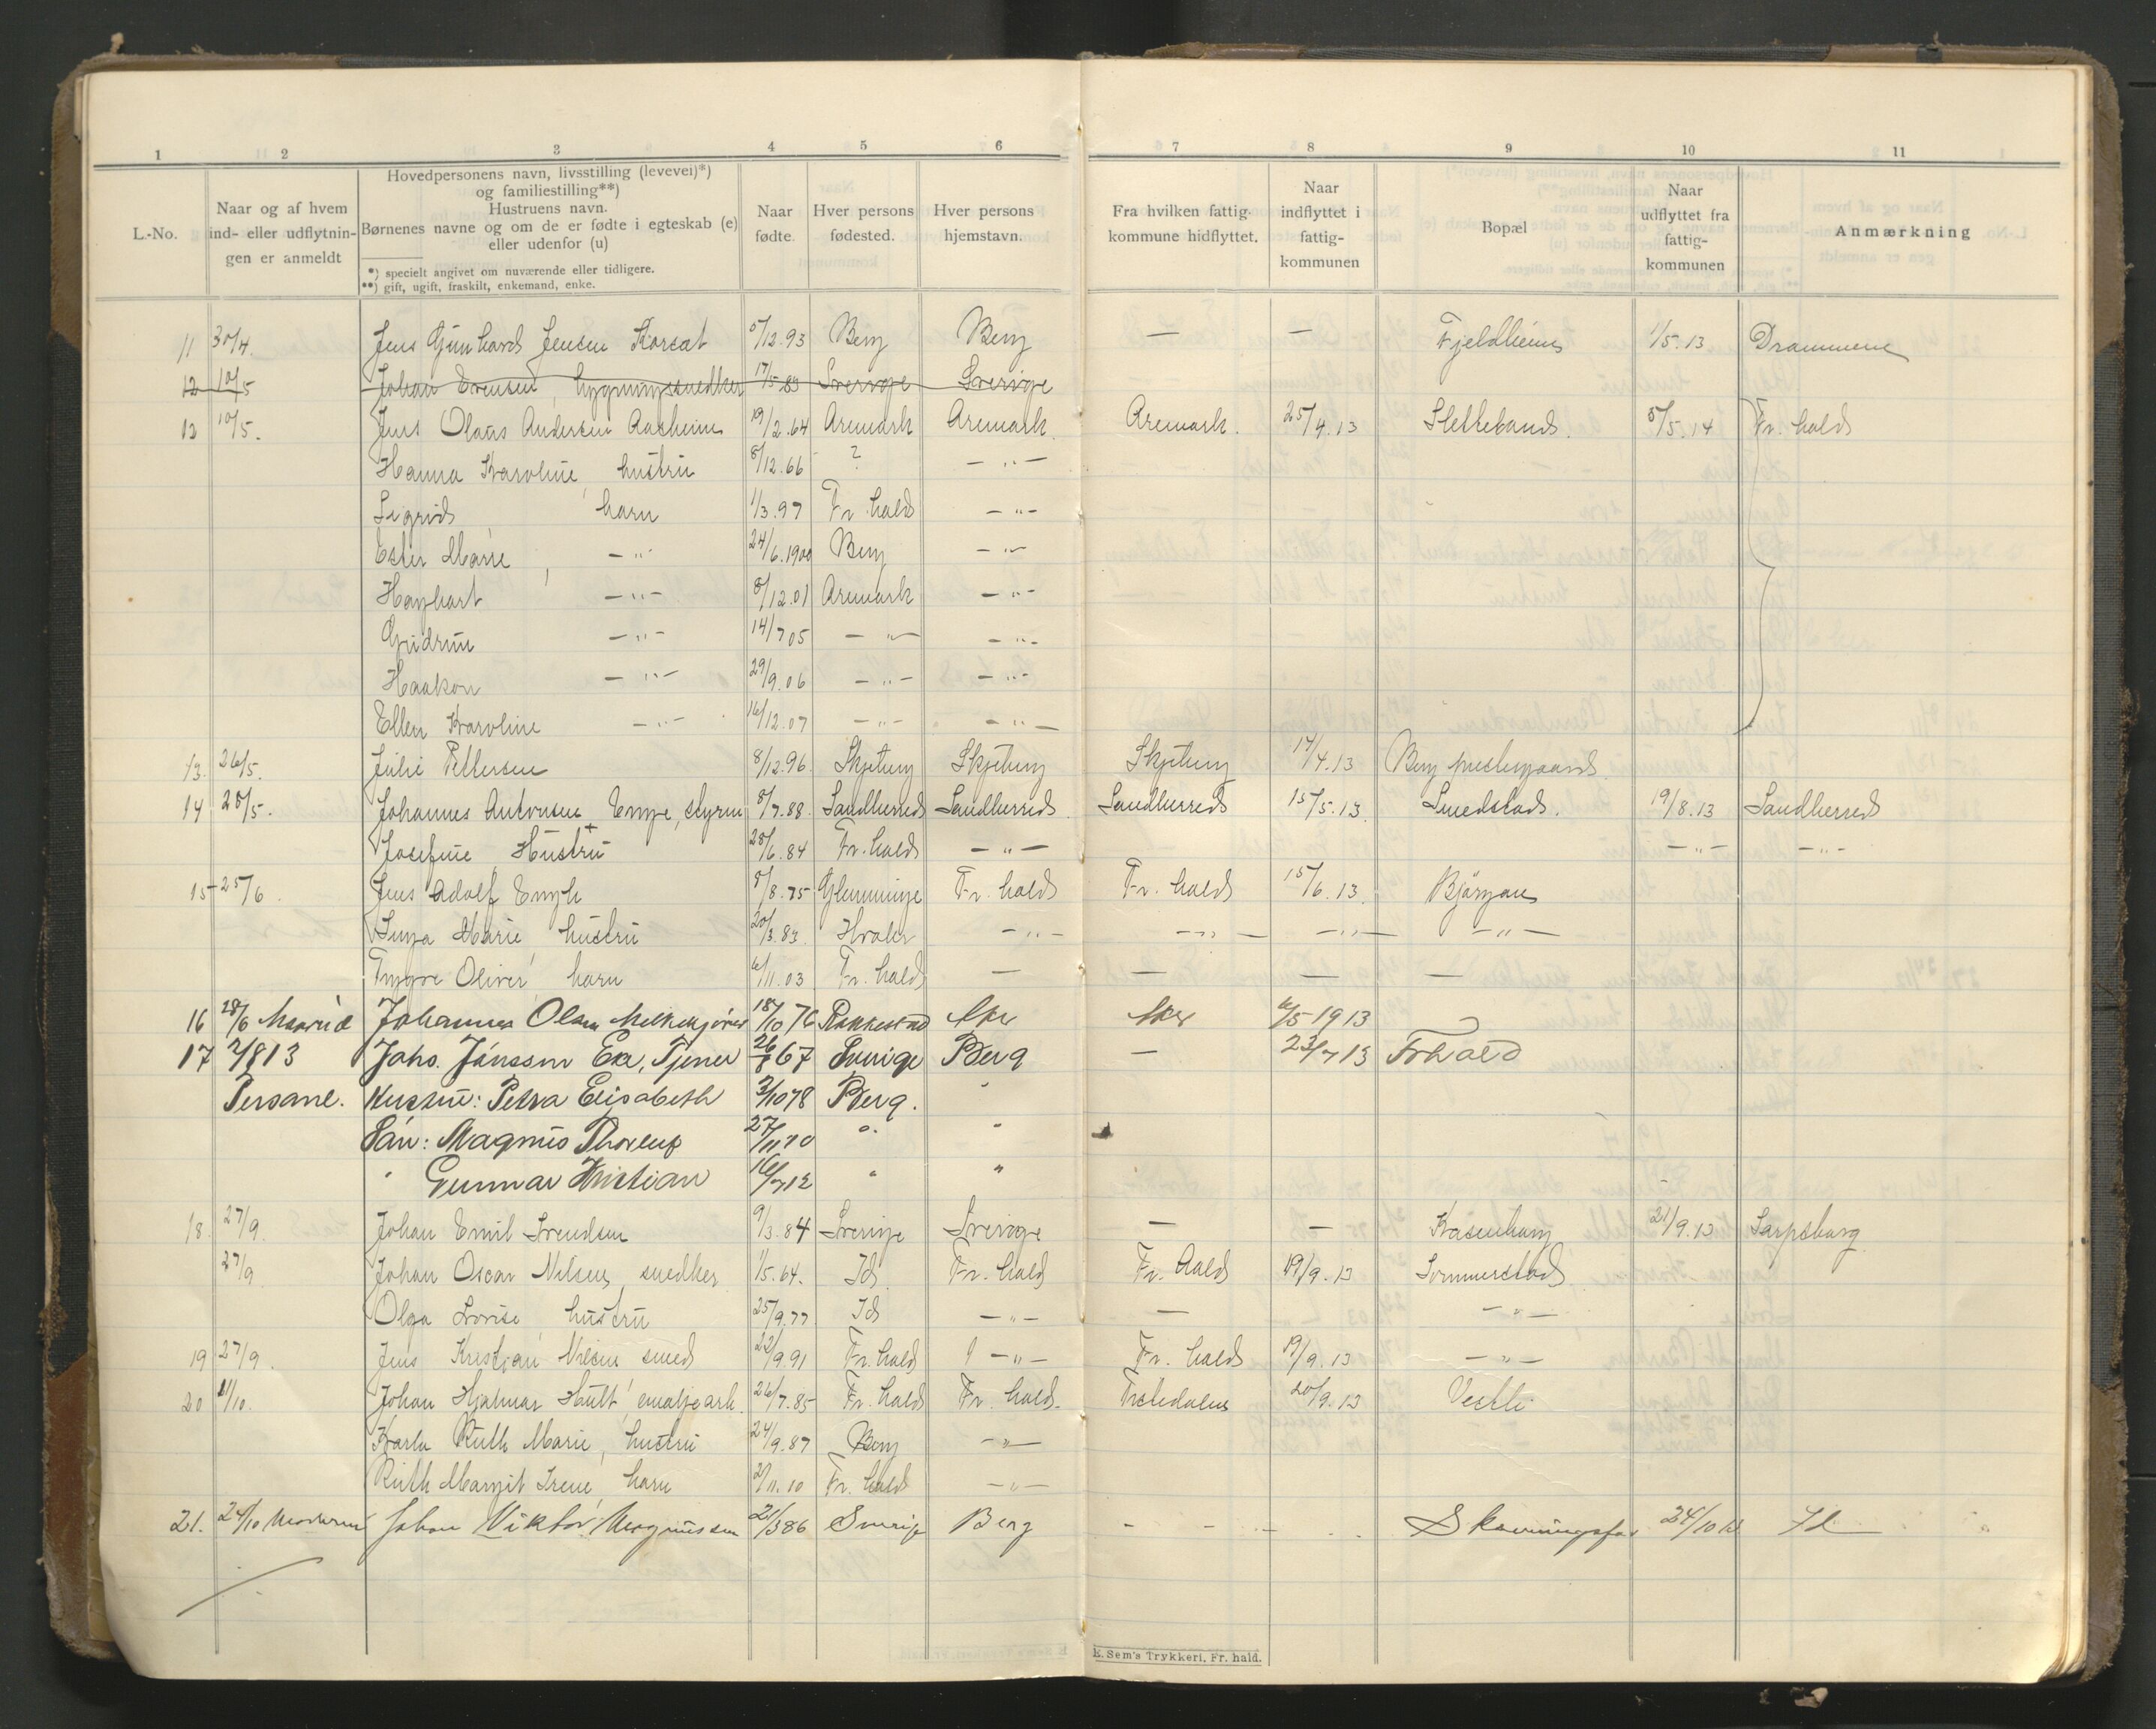 1 2 3 4 5 6 7 8 9 10 11
L.-No.
Naar og af hvem ind- eller udflytnin-gen er anmeldt
Hovedpersonens navn, livsstilling (levevei)*)
og familiestilling**)
Hustruens navn.
Børnenes navne og om de er fødte i egteskab (e)
eller udenfor (u)
*) specielt angivet om nuværende eller tidligere.
**) gift, ugift, fraskilt, enkemand, enke.
Naar fødte.
Hver persons fødested.
Hver persons hjemstavn.
Fra hvilken fattig-kommune hidflyttet.
Naar indflyttet i fattig-kommunen
Bopæl
Naar udflyttet fra fattig-kommunen
Anmærkning
11 30/4. Jens Gunhard Jensen 5/12.93 Berg Berg — — Fjeldheim 1/5.13 Drammen
12 10/5 Johan Svensen, bygningssnedker 17/5 83 Sverige Sverige
12 10/5. Jens Olaus Andersen Aasheim 19/2.64 Aremark Aremark Aremark. 25/4.13 5/5.14 Fr. hald
Hanna Karoline, hustru 8/12.66 ? — " —
Sigrid, barn 1/3.97 Fr. hald — " —
Ester Marie, — " — 24/6.1900 Berg — " —
— " — 8/12.01 Aremark — " —
Gudrun — " — 14/7 05 — " — — " —
Haakon — " — 29/9.06 — " — — " —
Ellen Karoline — " — 16/12.07 — " — — " —
13. 26/5. Julie Pettersen 8/12.96 Skjeberg Skjeberg Skjeberg 14/4.13 Berg prestegaard
14 28/5. Johannes Antonsen Enge, styrm 8/7.88. Sandherred Sandherred Sandherred 15/5.13. Smedstad. 19/8.13 Sandherred
Josefine Hustru 28/6.84 Fr. hald — " — — " — — " —
15 25/6. Jens Adolf Engh 8/8.75 Glemminge Fr. hald Fr. hald 15/6.13.
Marie hustru 20/3.83. Hvaler — " — — " — — " — — " —
Yngve Oliver barn 6/11.03 Fr. hald — — — —
16 28/6 Johannes Olsen 18/10 76 Rakkestad Aker Aker 6/5 1913
17 2/8 13 Johs. Jónsson Ek, Tjener 26/8 67 Sverige Berg — 23/7 13 Frhald
Hustru: Petra Elisabeth 3/10 78 Berg. "
Sön: Magnus Thorleif 27/11 10 " "
" Gunnar Kristian 16/7 12 " "
18. 27/9. Johan Emil Svendsen 9/3.84 Sverige Sverige — — 21/9.13 Sarpsborg
27/9 Johan Oscar Nilsen, snedker 1/5.64. Id Fr. hald Fr. hald 19/9.13 Sommerstad
Olga Lovise hustru 25/9.77 Id — " — — — " —
19 27/9. Jens Kristian Nilsen smed 22/9.91 Fr. hald — " — Fr. hald 19/9.13 — " —
20 11/10. Johan Hjalmar Hult, emaljearb. 26/7.85 Fr. hald Fr. hald. Tistedalen 20/9.13 Vestli
Karla Ruth Marie, hustru 24/9.87 Berg — " —
Ruth Margit Irene, barn 2/11.10 Fr. hald — " —
21. 24/10 Johan Viktor Magnussen 21/3 86 Sverige Berg - - - - 24/10 13 Id
E. Sem's Trykkeri, Fr. hald.